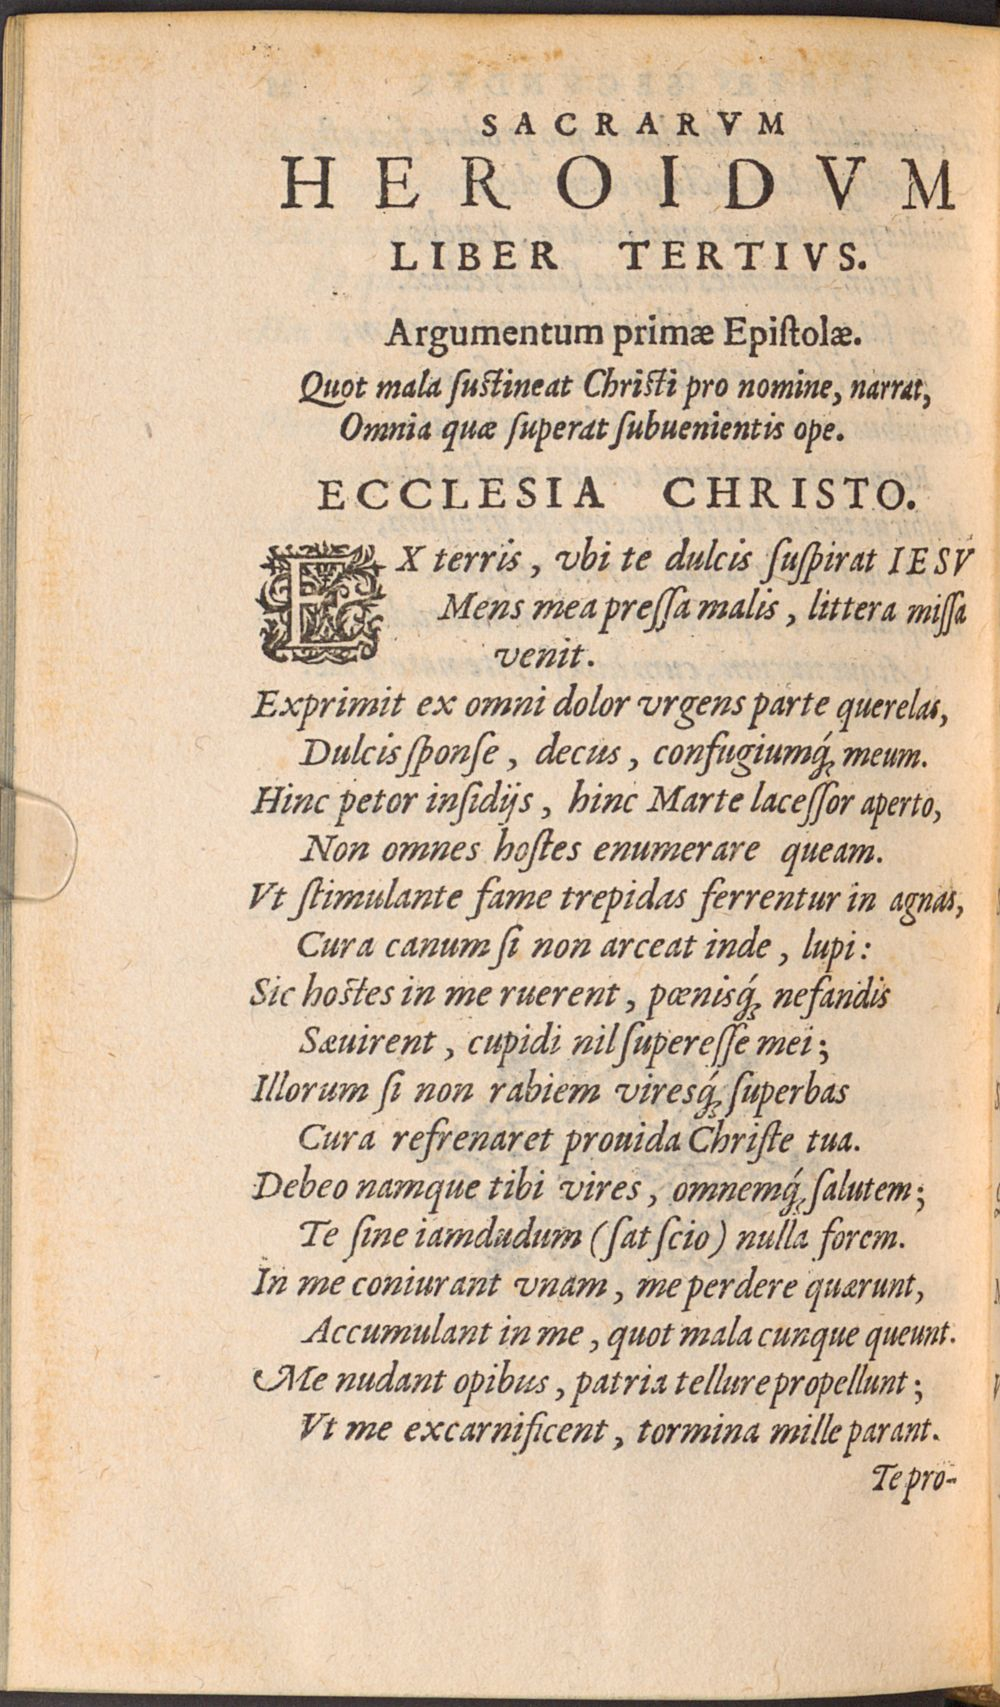 SACRARVM
HEROIDVM
LIBER TERTIVS.
Argumentum primæ Epiſtolæ.
Quot mala ſuſtineat Chriſti pro nomine, narrat,
Omnia quæ ſuperat ſubuenientis ope.
ECCLESIA CHRISTO.
EX terris, vbi te dulcis ſuſpirat IESV
Mens mea preſſa malis, littera miſſa
venit.
Exprimit ex omni dolor vrgens parte querelas,
Dulcis ſponſe, decus, confugiumq́; meum.
Hinc petor inſidijs, hinc Marte laceſſor aperto,
Non omnes hoſtes enumerare queam.
Vt ſtimulante fame trepidas ferrentur in agnas,
Cura canum ſi non arceat inde, lupi:
Sic hoſtes in me ruerent, pœnisq́; nefandis
Sæuirent, cupidi nil ſupereſſe mei;
Illorum ſi non rabiem viresq́; ſuperbas
Cura refrenaret prouida Chriſte tua.
Debeo namque tibi vires, omnemq́; ſalutem;
Te ſine iamdudum (ſat ſcio) nulla forem.
In me coniurant vnam, me perdere quærunt,
Accumulant in me, quot mala cunque queunt.
Me nudant opibus, patria tellure propellunt;
Vt me excarnificent, tormina mille parant.
Te pro-